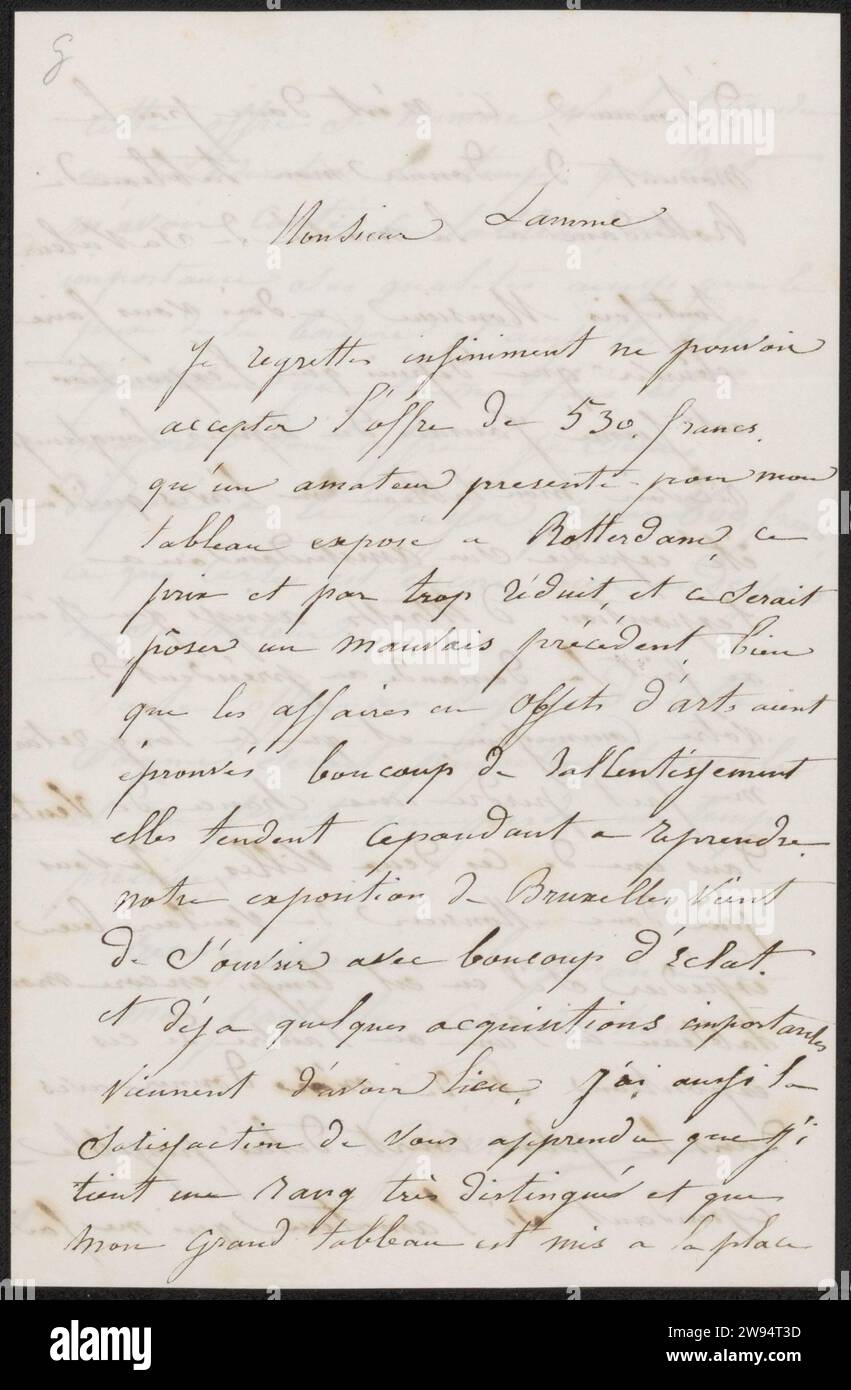 g
Monsieur Lamme
Je regrette infiniment ne pouvoir
accepter l'offre de 530. francs.
qu'un amateur presente pour mon
tableau exposé a Rotterdam, ce
prix et par trop réduit, et ce serait
pôser un mauvais précédent, bien
que les affaires en objets d'arts aient
éprouvés boucoup de rallentissement
elles tendent cependant a reprendre.
notre exposition de Bruxelles vient
de s'ouvrir avec boucoup d'éclat.
et déja quelques acquisitions importantes
viennent d'avoir lieu, J'ai aussi la
satisfaction de vous apprendre que j'i
tient une rang très distingué et que
mon grand tableau est mis a la place
alamy
Image ID: 2W94T3D
www.alamy.com